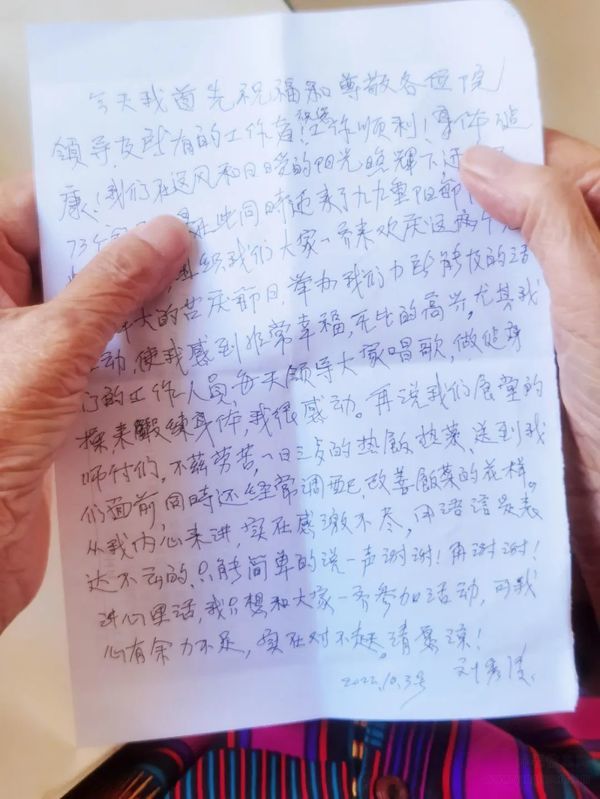 今天我首先祝福和尊敬各位院
领导及所有的工作者！祝您工作顺利！身体健
康！我们在这风和日晚的阳光照辉下迎
73 在此同时迎来了九九重阳节
组织我们大家一齐来欢庆这两个
大的节庆节日，举办我们力所能及的活
动，使我感到非常幸福，无比的高兴，尤其我
们的工作人员，每天领导大家唱歌，做健身
操来锻练身体，我很感动。再说我们食堂的
师付们，不兹劳苦，一日三歺的热飯热菜，送到我
们面前，同時还经常调配，改善飯菜的花样。
从我内心来讲，实在感激不尽，用语语是表
达不岀的，只能简单的说一声谢谢！再谢谢！
讲心里话，我只想和大家一齐参加活动，可我
心有余力不足，实在对不起。请原谅！
2022.10.3号